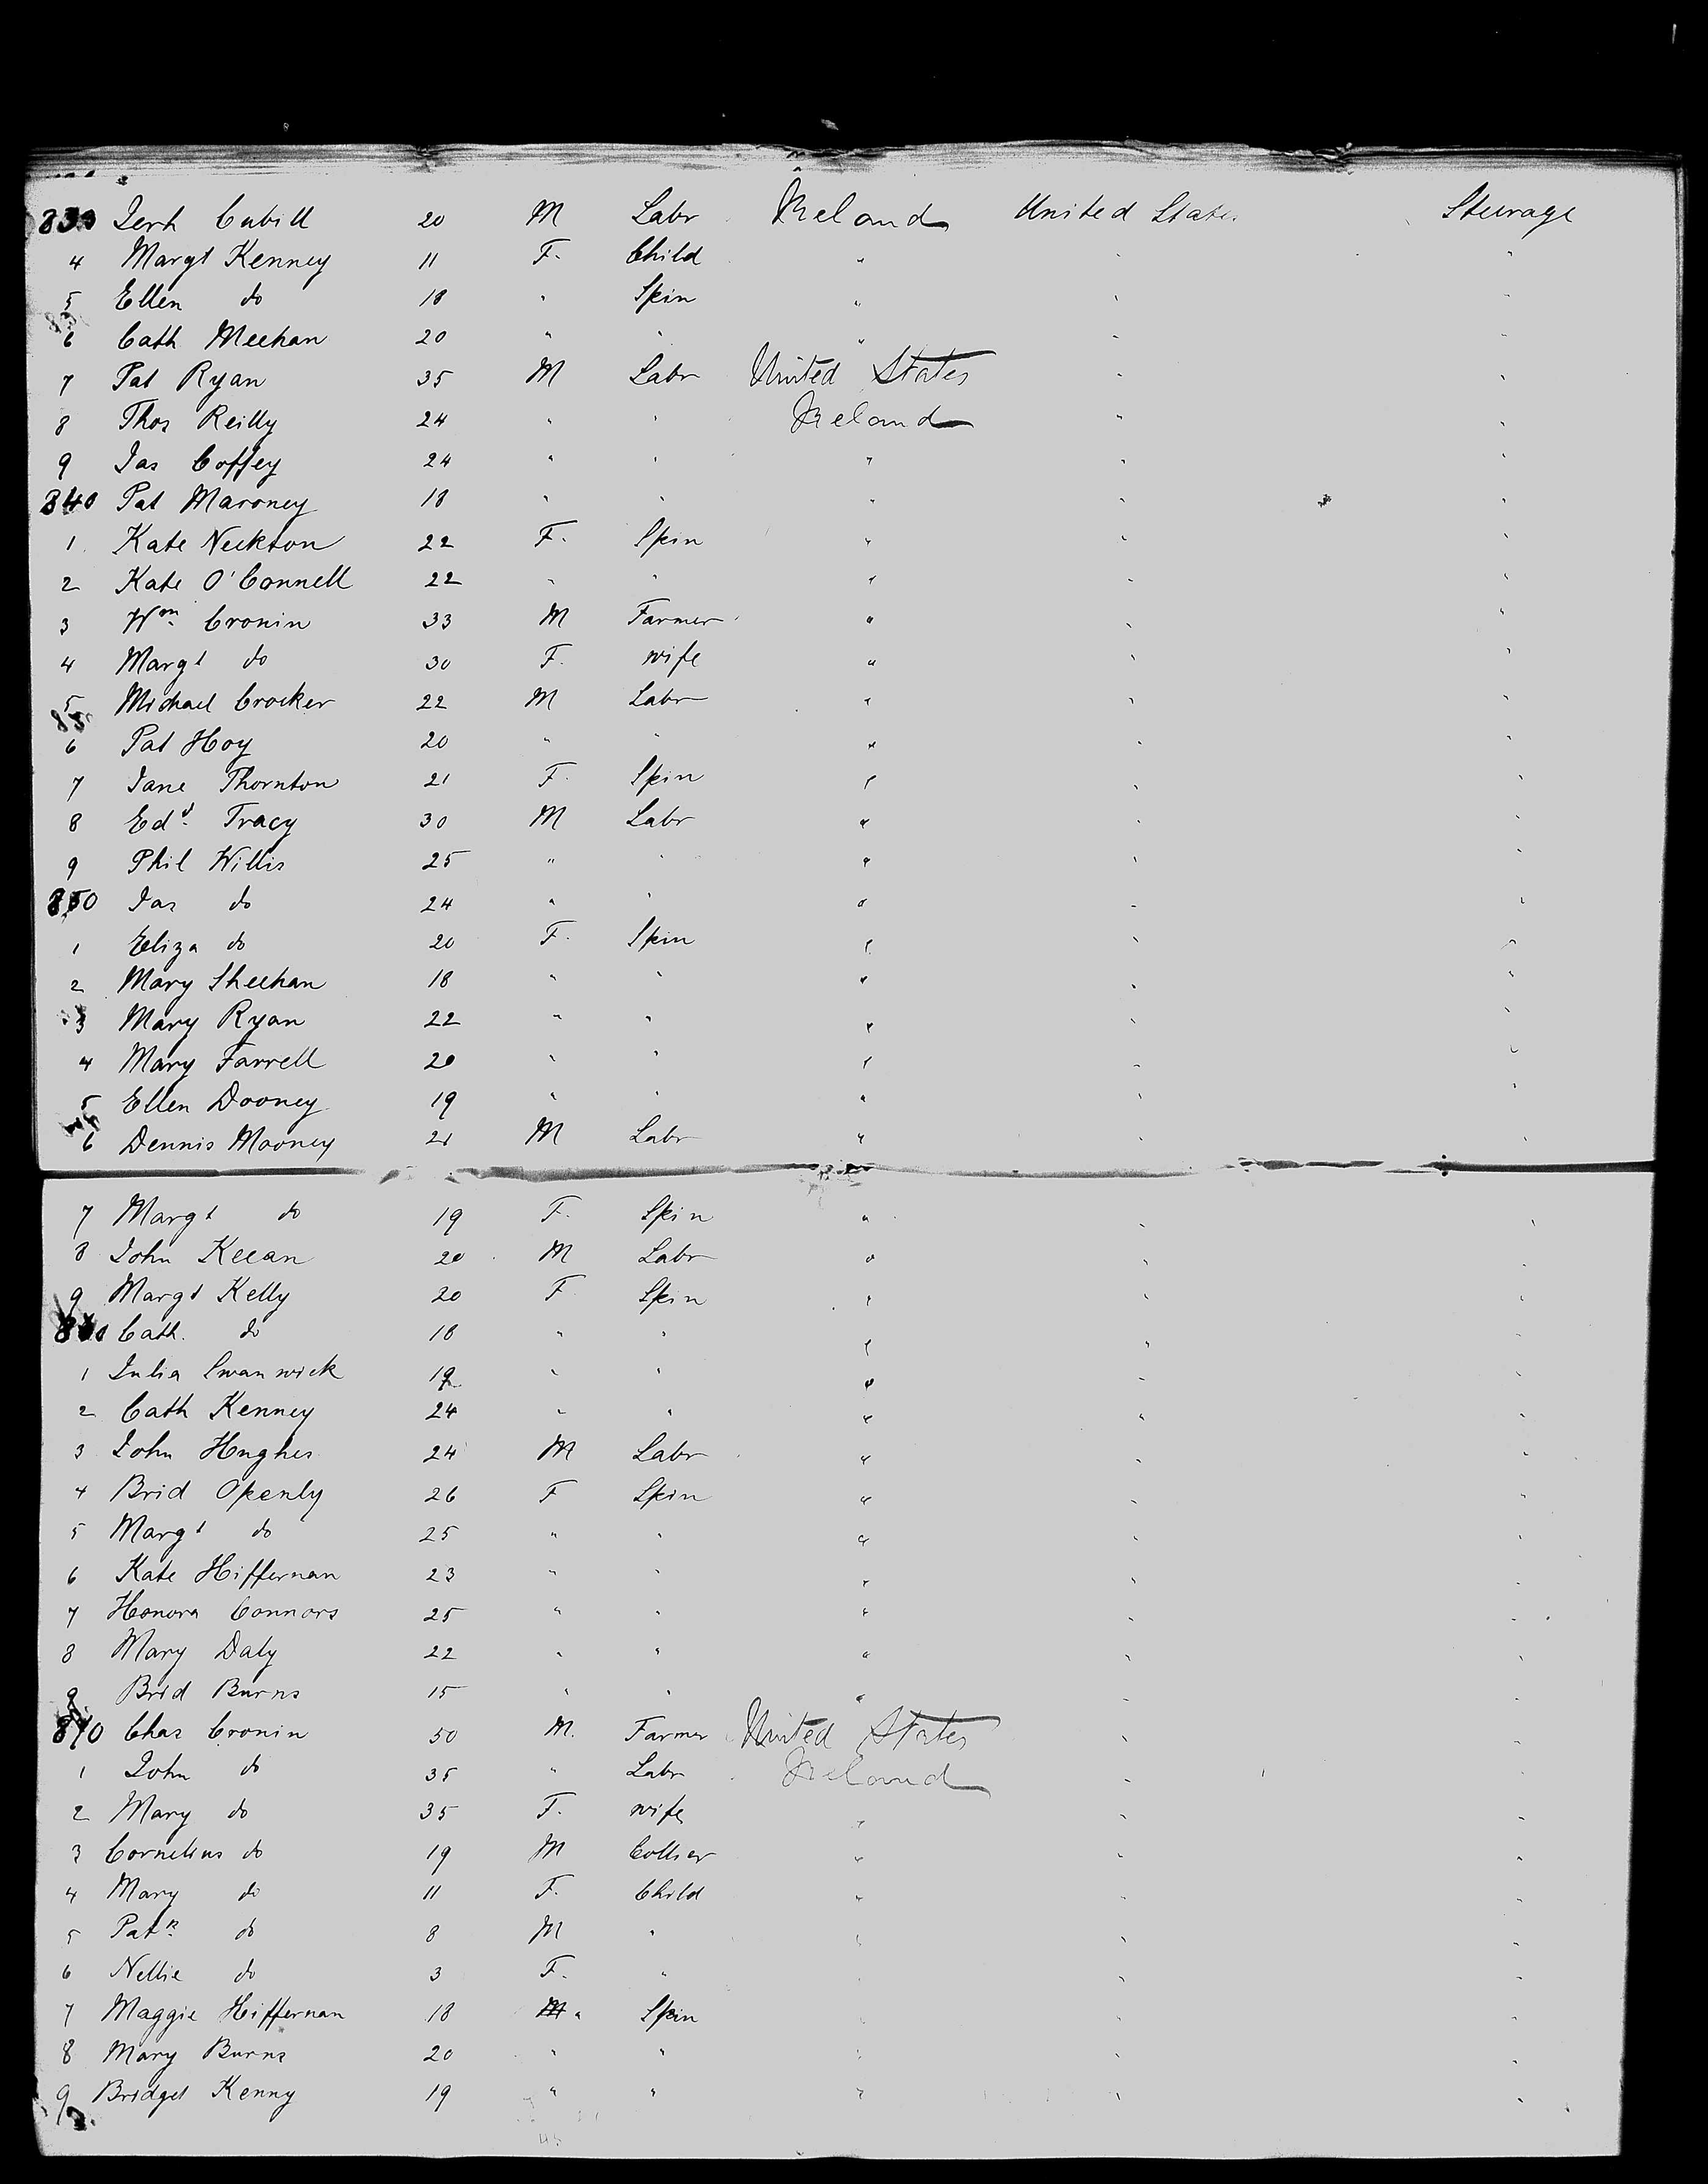 833 Jerh Cahill 20 M Labr Ireland United States Steerage
4 Margt Kenney 11 F. Child " " "
5 Ellen do 18 " Spin " " "
6 Cath Meehan 20 " " " " "
7 Pat Ryan 35 M Labr United States " "
8 Thos Reilly 24 " " Ireland " "
9 Jas Coffey 24 " " " " "
840 Pat Maroney 18 " " " " "
1 Kate Neckton 22 F. Spin " " "
2 Kate O'Connell 22 " " " " "
3 Wm Cronin 33 M Farmer " " "
4 Margt do 30 F. wife " " "
5 Michael Crocker 22 M Labr " " "
6 Pat Hoy 20 " " " " "
7 Jane Thornton 21 F. Spin " " "
8 Edd Tracy 30 M Labr " " "
9 Phil Willis 25 " " " " "
850 Jas do 24 " " " " "
1 Eliza do 20 F. Spin " " "
2 Mary Sheehan 18 " " " " "
3 Mary Ryan 22 " " " " "
4 Mary Farrell 20 " " " " "
5 Ellen Dooney 19 " " " " "
6 Dennis Mooney 21 M Labr " " "
7 Margt do 19 F. Spin " " "
8 John Keean 20 M Labr " " "
9 Margt Kelly 20 F Spin " " "
860 Cath. do 18 " " " " "
1 Julia Swanwick 19 " " " " "
2 Cath Kenney 24 " " " " "
3 John Hughes 24 M Labr " " "
4 Brid Openly 26 F Spin " " "
5 Margt do 25 " " " " "
6 Kate Hiffernan 23 " " " " "
7 Honora Connors 25 " " " " "
8 Mary Daly 22 " " " " "
9 Brid Burns 15 " " " " "
870 Chas Cronin 50 M. Farmer United States " "
1 John do 35 " Labr Ireland " "
2 Mary do 35 F. wife " " "
3 Cornelius do 19 M Collier " " "
4 Mary do 11 F. Child " " "
5 Patk do 8 M " " " "
6 Nellie do 3 F. " " " "
7 Maggie Hiffernan 18 " Spin " " "
8 Mary Burns 20 " " " " "
9 Bridget Kenny 19 " " " " "